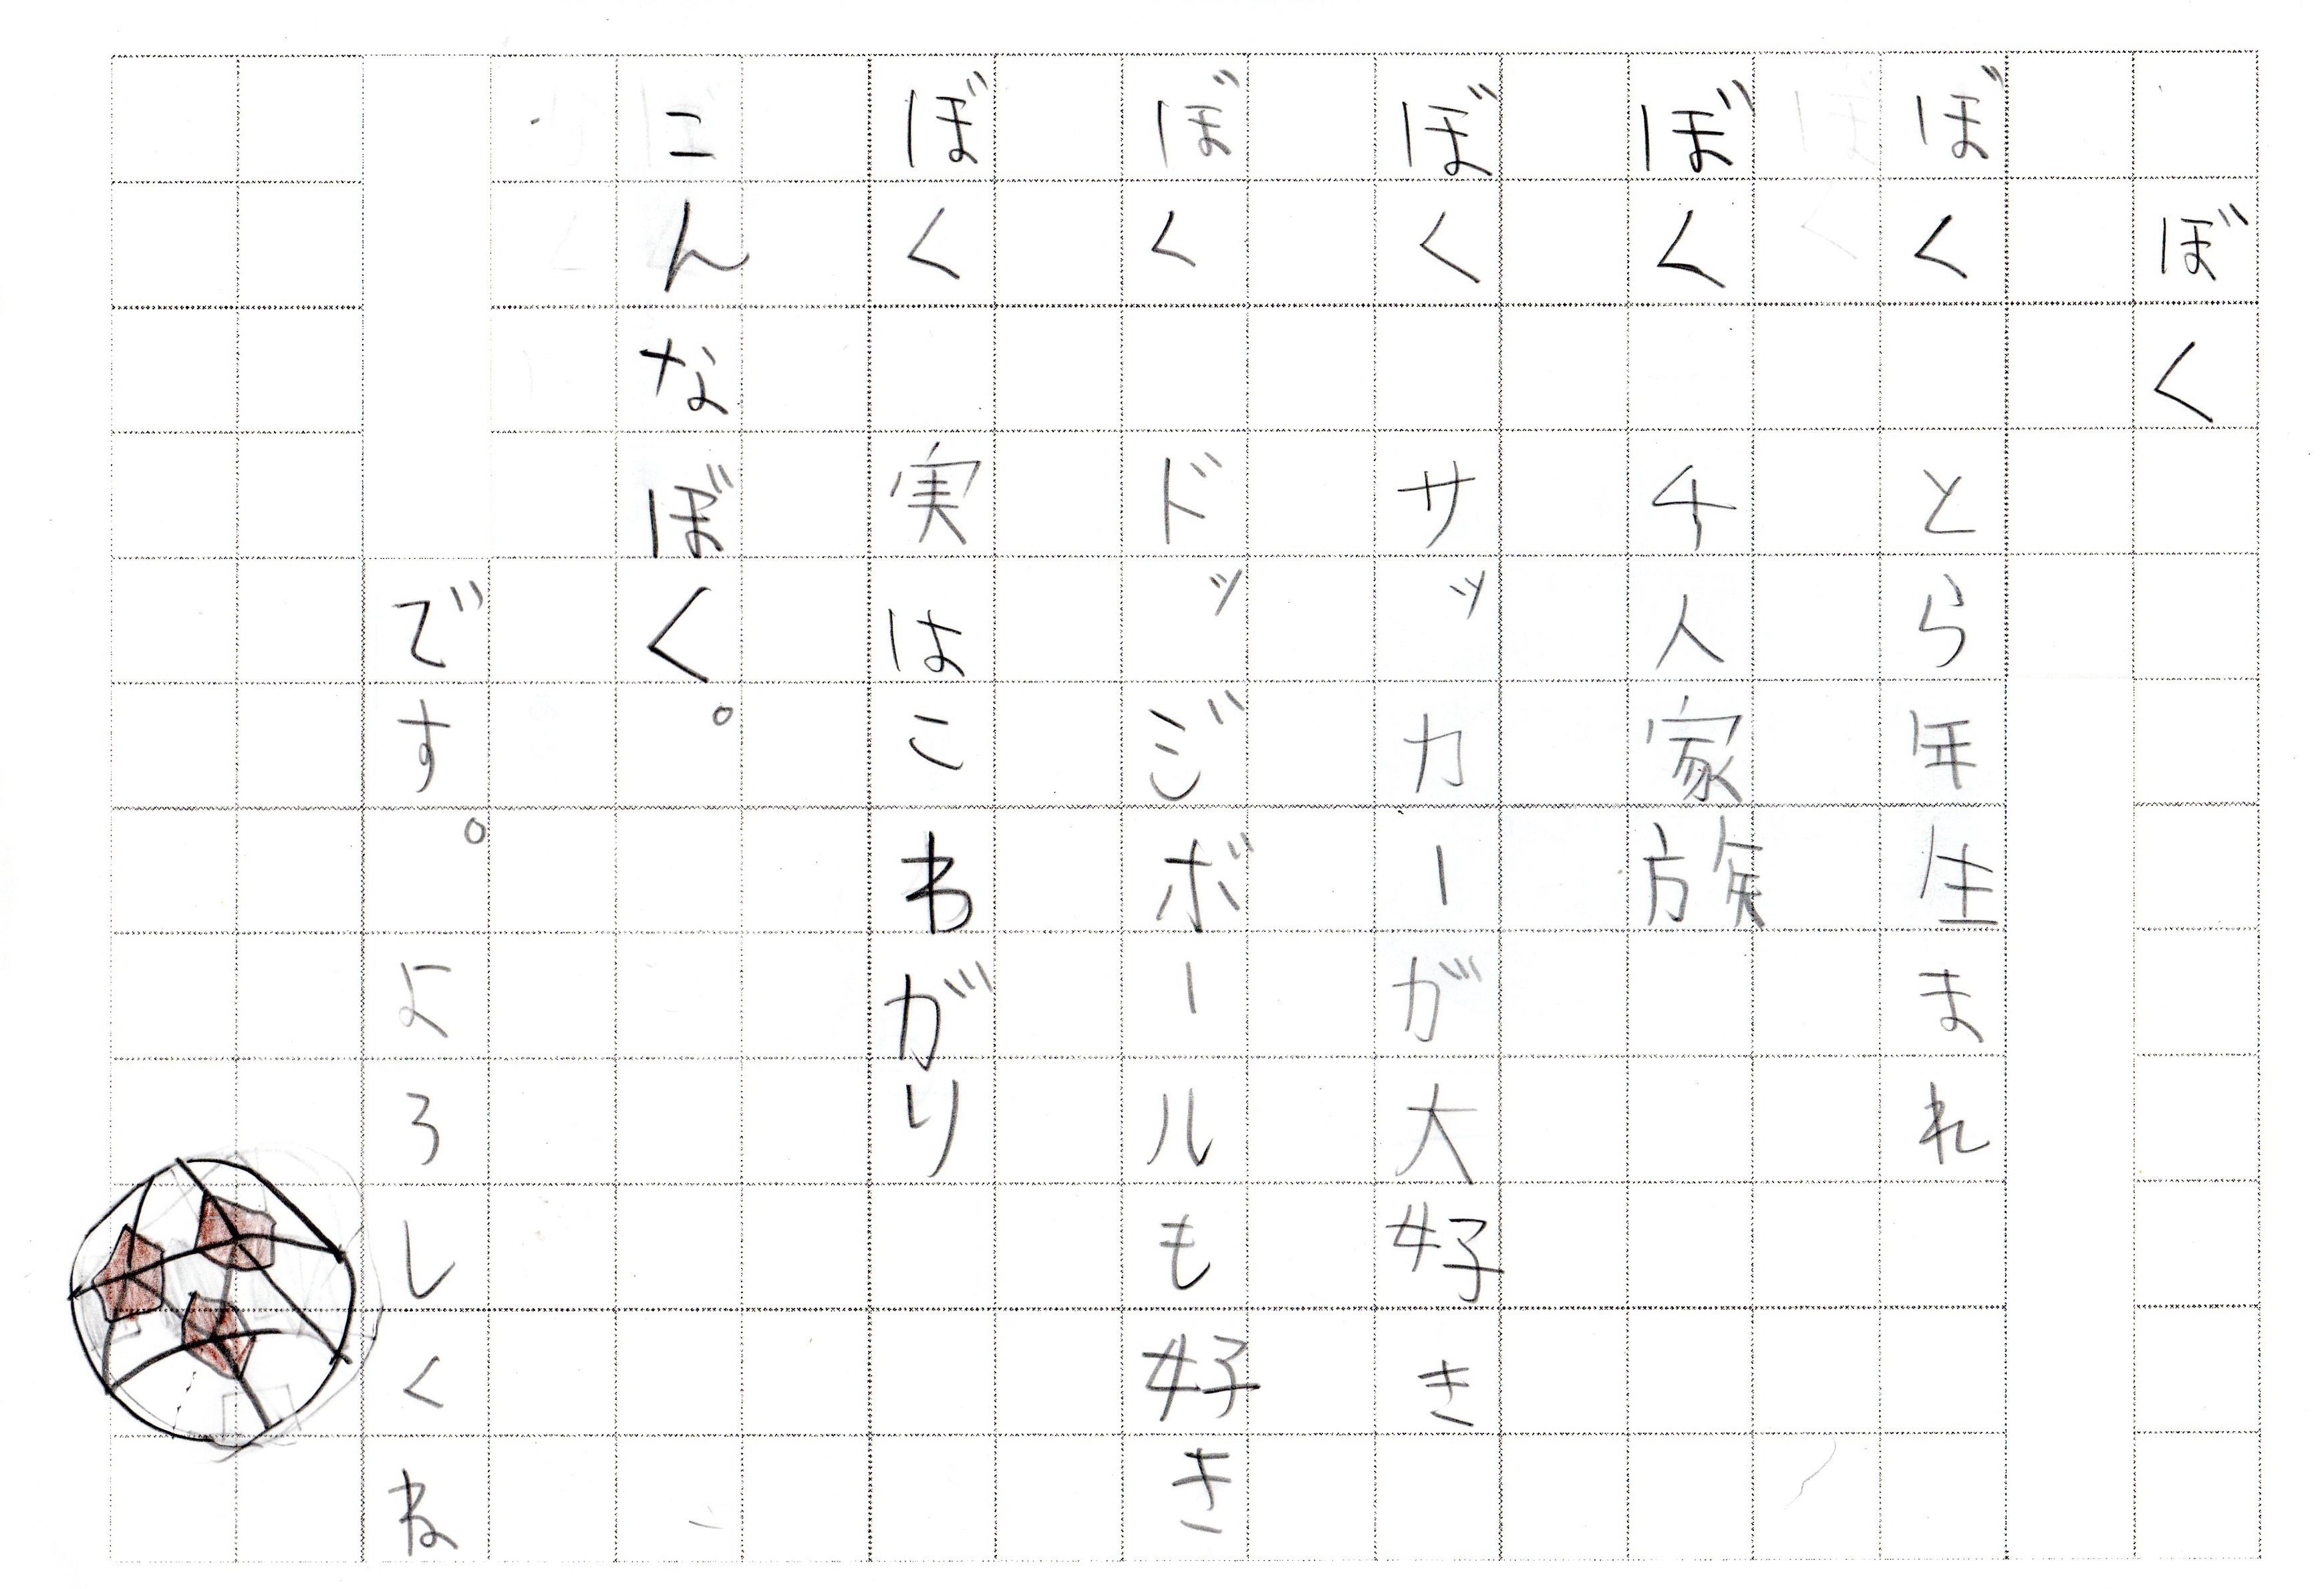 ぼく
ぼく　とら年生まれ
ぼく　4人家族
ぼく　サッカーが大好き
ぼく　ドッジボールも好き
ぼく　実はこわがり
こんなぼく。
です。よろしくね